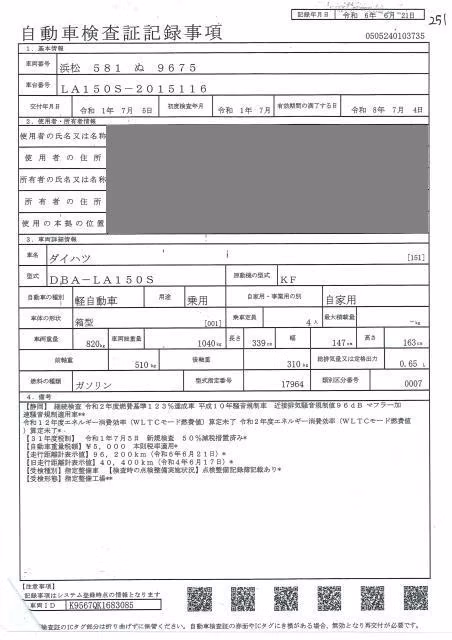 記録年月日 令和 6年 6月 21日
251
自動車検査証記録事項
0505240103735
1. 基本情報
車両番号 浜松 581 ぬ 9675
車台番号 LA150S-2015116
交付年月日 令和 1年 7月 5日 初度検査年月 令和 1年 7月 有効期間の満了する日 令和 8年 7月 4日
2. 使用者・所有者情報
使用者の氏名又は名称
使用者の住所
所有者の氏名又は名称
所有者の住所
使用の本拠の位置
3. 車両詳細情報
車名 ダイハツ [151]
型式 DBA-LA150S 原動機の型式 KF
自動車の種別 軽自動車 用途 乗用 自家用・事業用の別 自家用
車体の形状 箱型 [001] 乗車定員 4人 最大積載量 -kg
車両重量 820kg 車両総重量 1040kg 長さ 339cm 幅 147cm 高さ 163cm
前軸重 510kg 後軸重 310kg 総排気量又は定格出力 0.65 L
燃料の種類 ガソリン 型式指定番号 17964 類別区分番号 0007
4. 備考
【静岡】 継続検査 令和2年度燃費基準123%達成車 平成10年騒音規制車 近接排気騒音規制値96dB マフラー加
速騒音規制適用車**
令和12年度エネルギー消費効率(WLTCモード燃費値)算定未了 令和2年度エネルギー消費効率(WLTCモード燃費値
)算定未了*
【31年度税制】 令和1年7月5日 新規検査 50%減税措置済み*
【自動車重量税額】¥5,000 本則税率適用*
【走行距離計表示値】96,200km(令和6年6月21日)*
【旧走行距離計表示値】40,400km(令和4年6月17日)*
【受検種別】指定整備車 【検査時の点検整備実施状況】点検整備記録簿記載あり*
【受検形態】指定整備工場**
【注意事項】
記録事項はシステム登録時点の情報となります
車両ID K9567QK1683085
検査証のICタグ部分は折り曲げずに保管ください。自動車検査証の券面やICタグにき損がある場合、無効となり再交付が必要です。